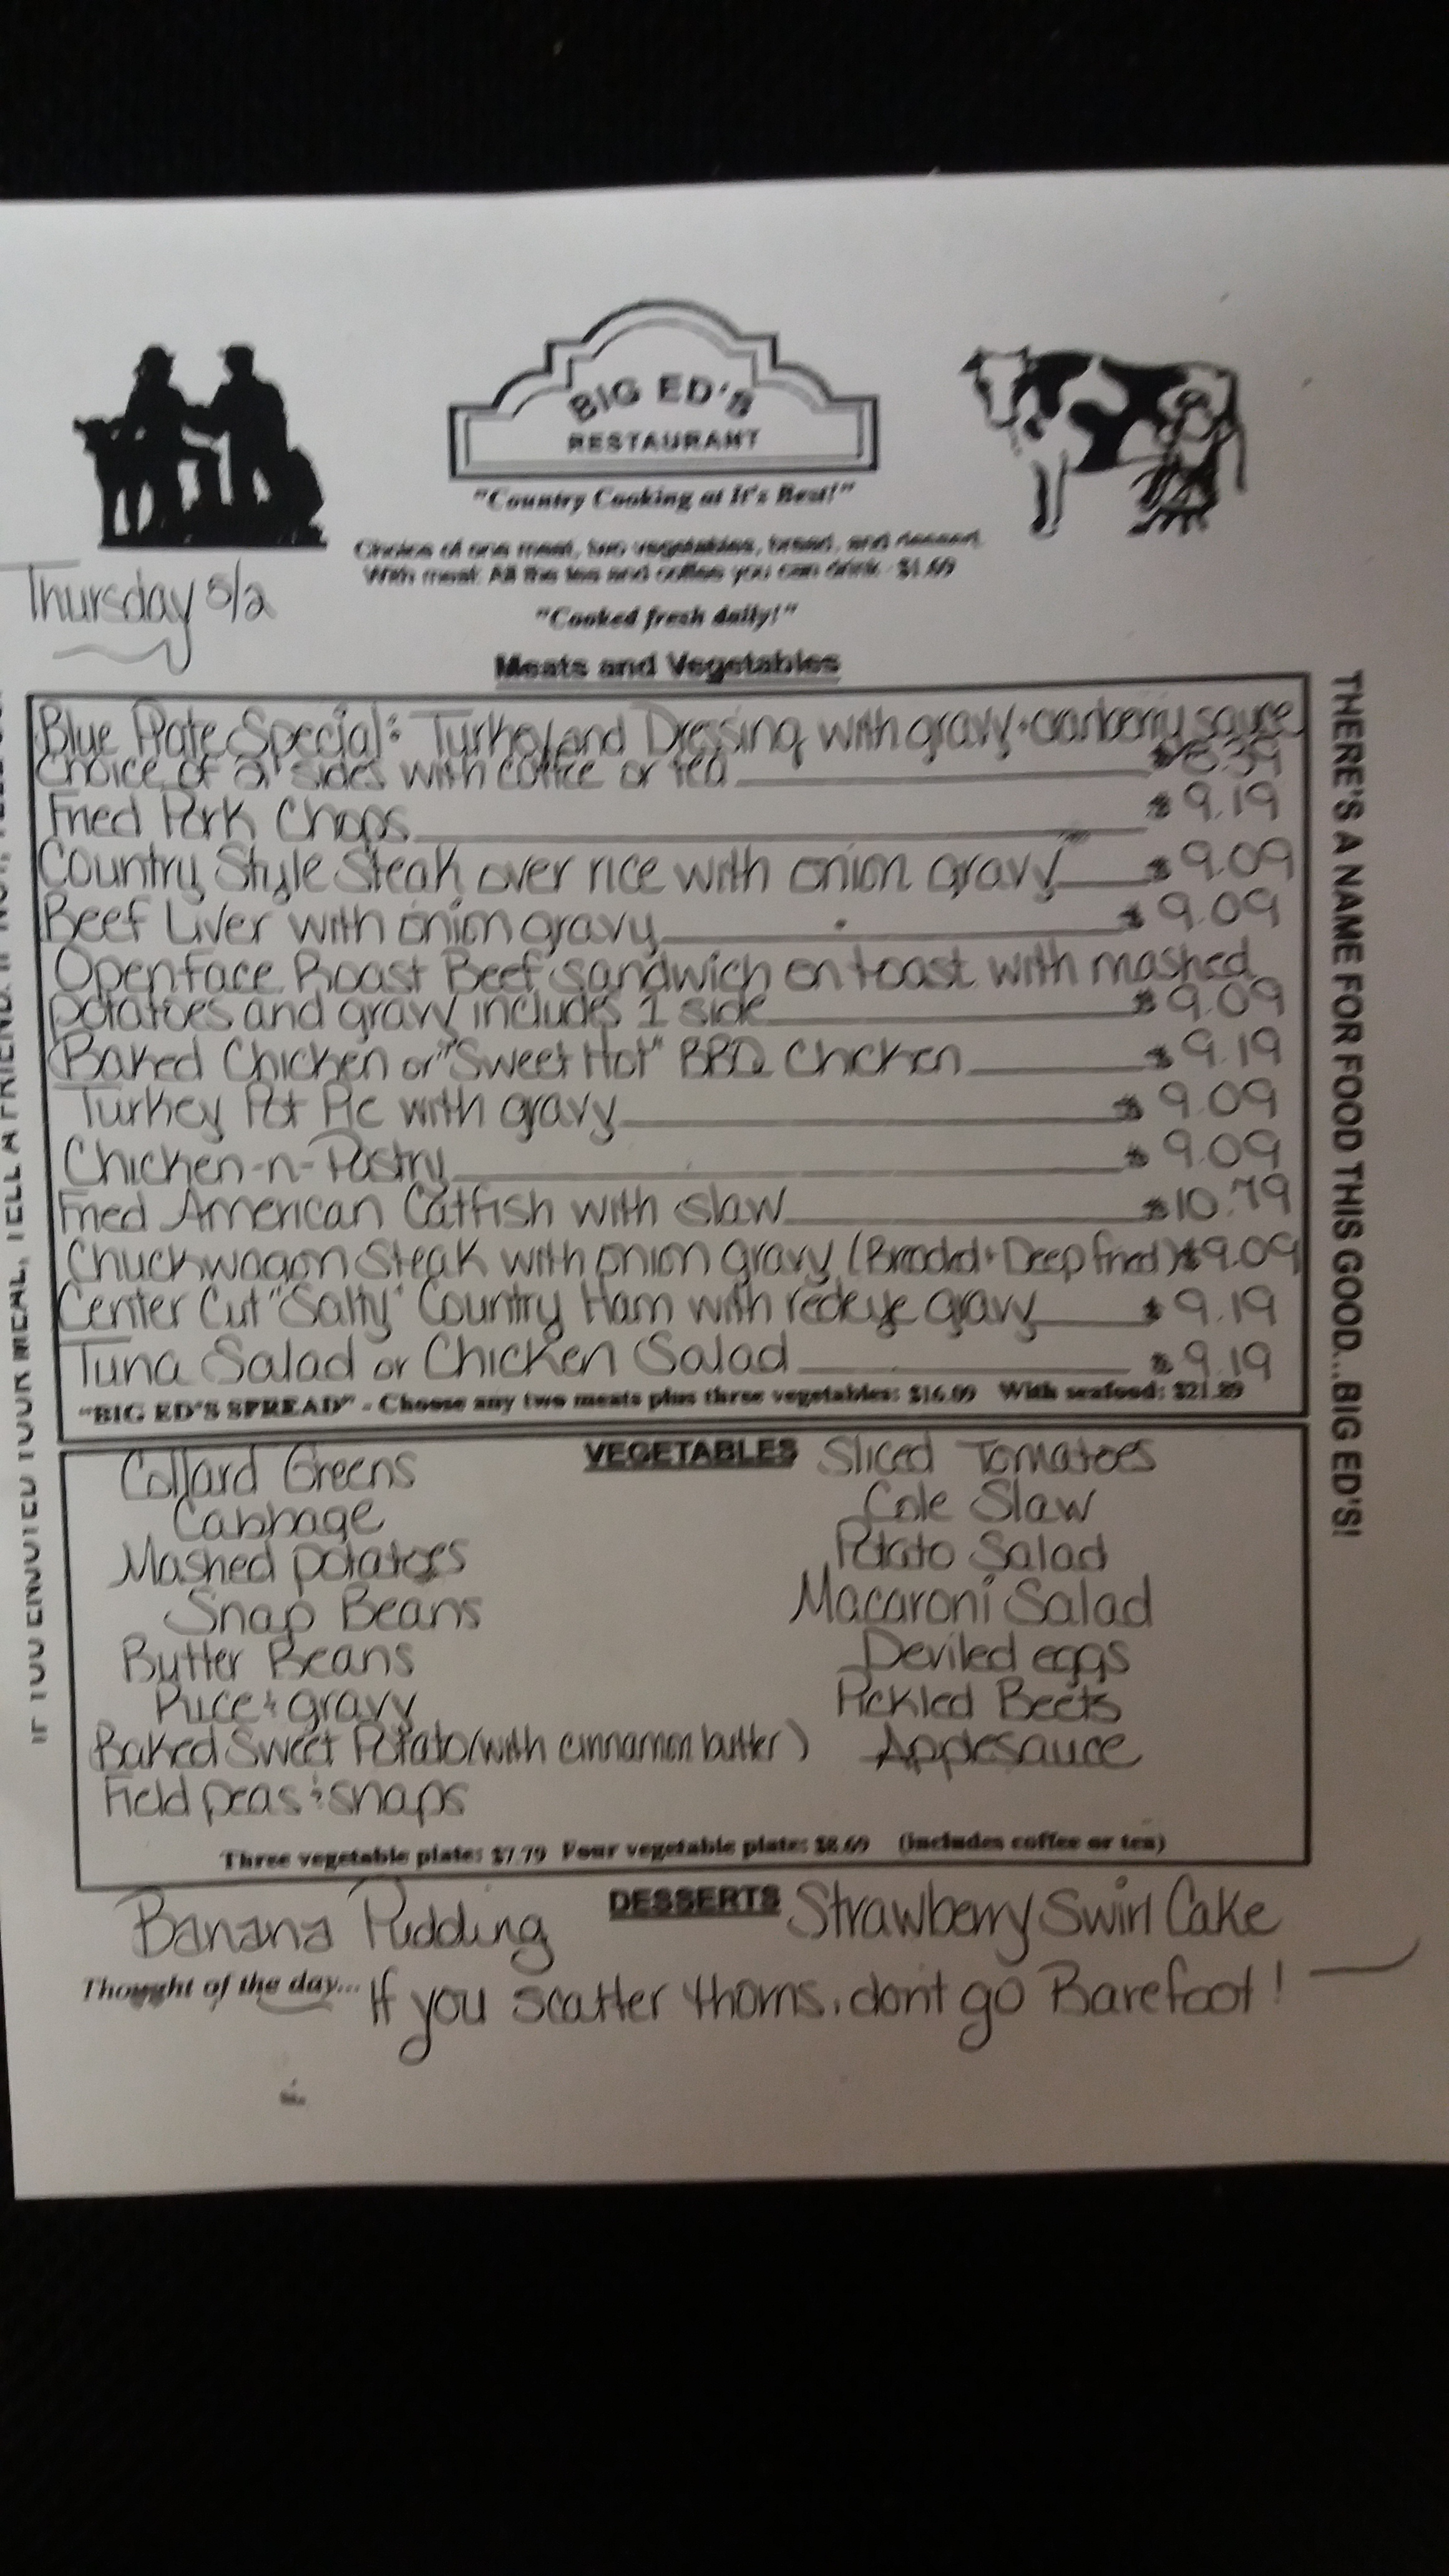 BIG ED'S
RESTAURANT
"Country Cooking at It's Best!"
Choice of one meat, two vegetables, bread, and dessert.
With meal: All the tea and coffee you can drink - $1.69
"Cooked fresh daily!"
Thursday 5/2
Meats and Vegetables
Blue Plate Special: Turkey and Dressing with gravy + cranberry sauce
Choice of 2 sides with coffee or tea $8.39
Fried Pork Chops $9.19
Country Style Steak over rice with onion gravy $9.09
Beef Liver with onion gravy $9.09
Openface Roast Beef sandwich on toast with mashed
potatoes and gravy includes 1 side $9.09
Baked Chicken or "Sweet Hot" BBQ Chicken $9.19
Turkey Pot Pie with gravy $9.09
Chicken-n-Pastry $9.09
Fried American Catfish with slaw $10.79
Chuckwagon Steak with onion gravy (Breaded + Deep fried) $9.09
Center Cut "Salty" Country Ham with redeye gravy $9.19
Tuna Salad or Chicken Salad $9.19
"BIG ED'S SPREAD" - Choose any two meats plus three vegetables: $16.09 With seafood: $21.89
VEGETABLES
Collard Greens
Cabbage
Mashed potatoes
Snap Beans
Butter Beans
Rice & gravy
Baked Sweet Potato (with cinnamon butter)
Field peas & snaps
Sliced Tomatoes
Cole Slaw
Potato Salad
Macaroni Salad
Deviled eggs
Pickled Beets
Applesauce
Three vegetable plate: $7.79 Four vegetable plate: $8.69 (includes coffee or tea)
DESSERTS
Banana Pudding
Strawberry Swirl Cake
Thought of the day... If you scatter thorns, don't go Barefoot!
THERE'S A NAME FOR FOOD THIS GOOD...BIG ED'S!
IF YOU ENJOYED YOUR MEAL, TELL A FRIEND. IF NOT,